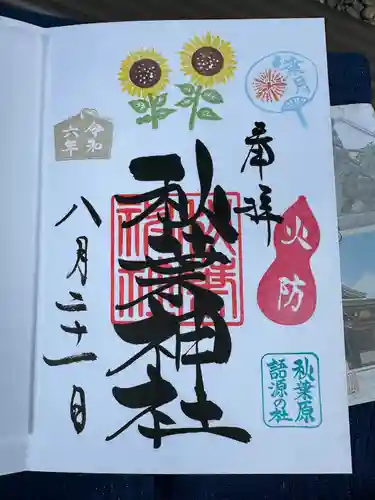 奉拝
火防
秋葉原
語源の社
秋葉神社
秋葉
神社
令和
六年
八月二十一日